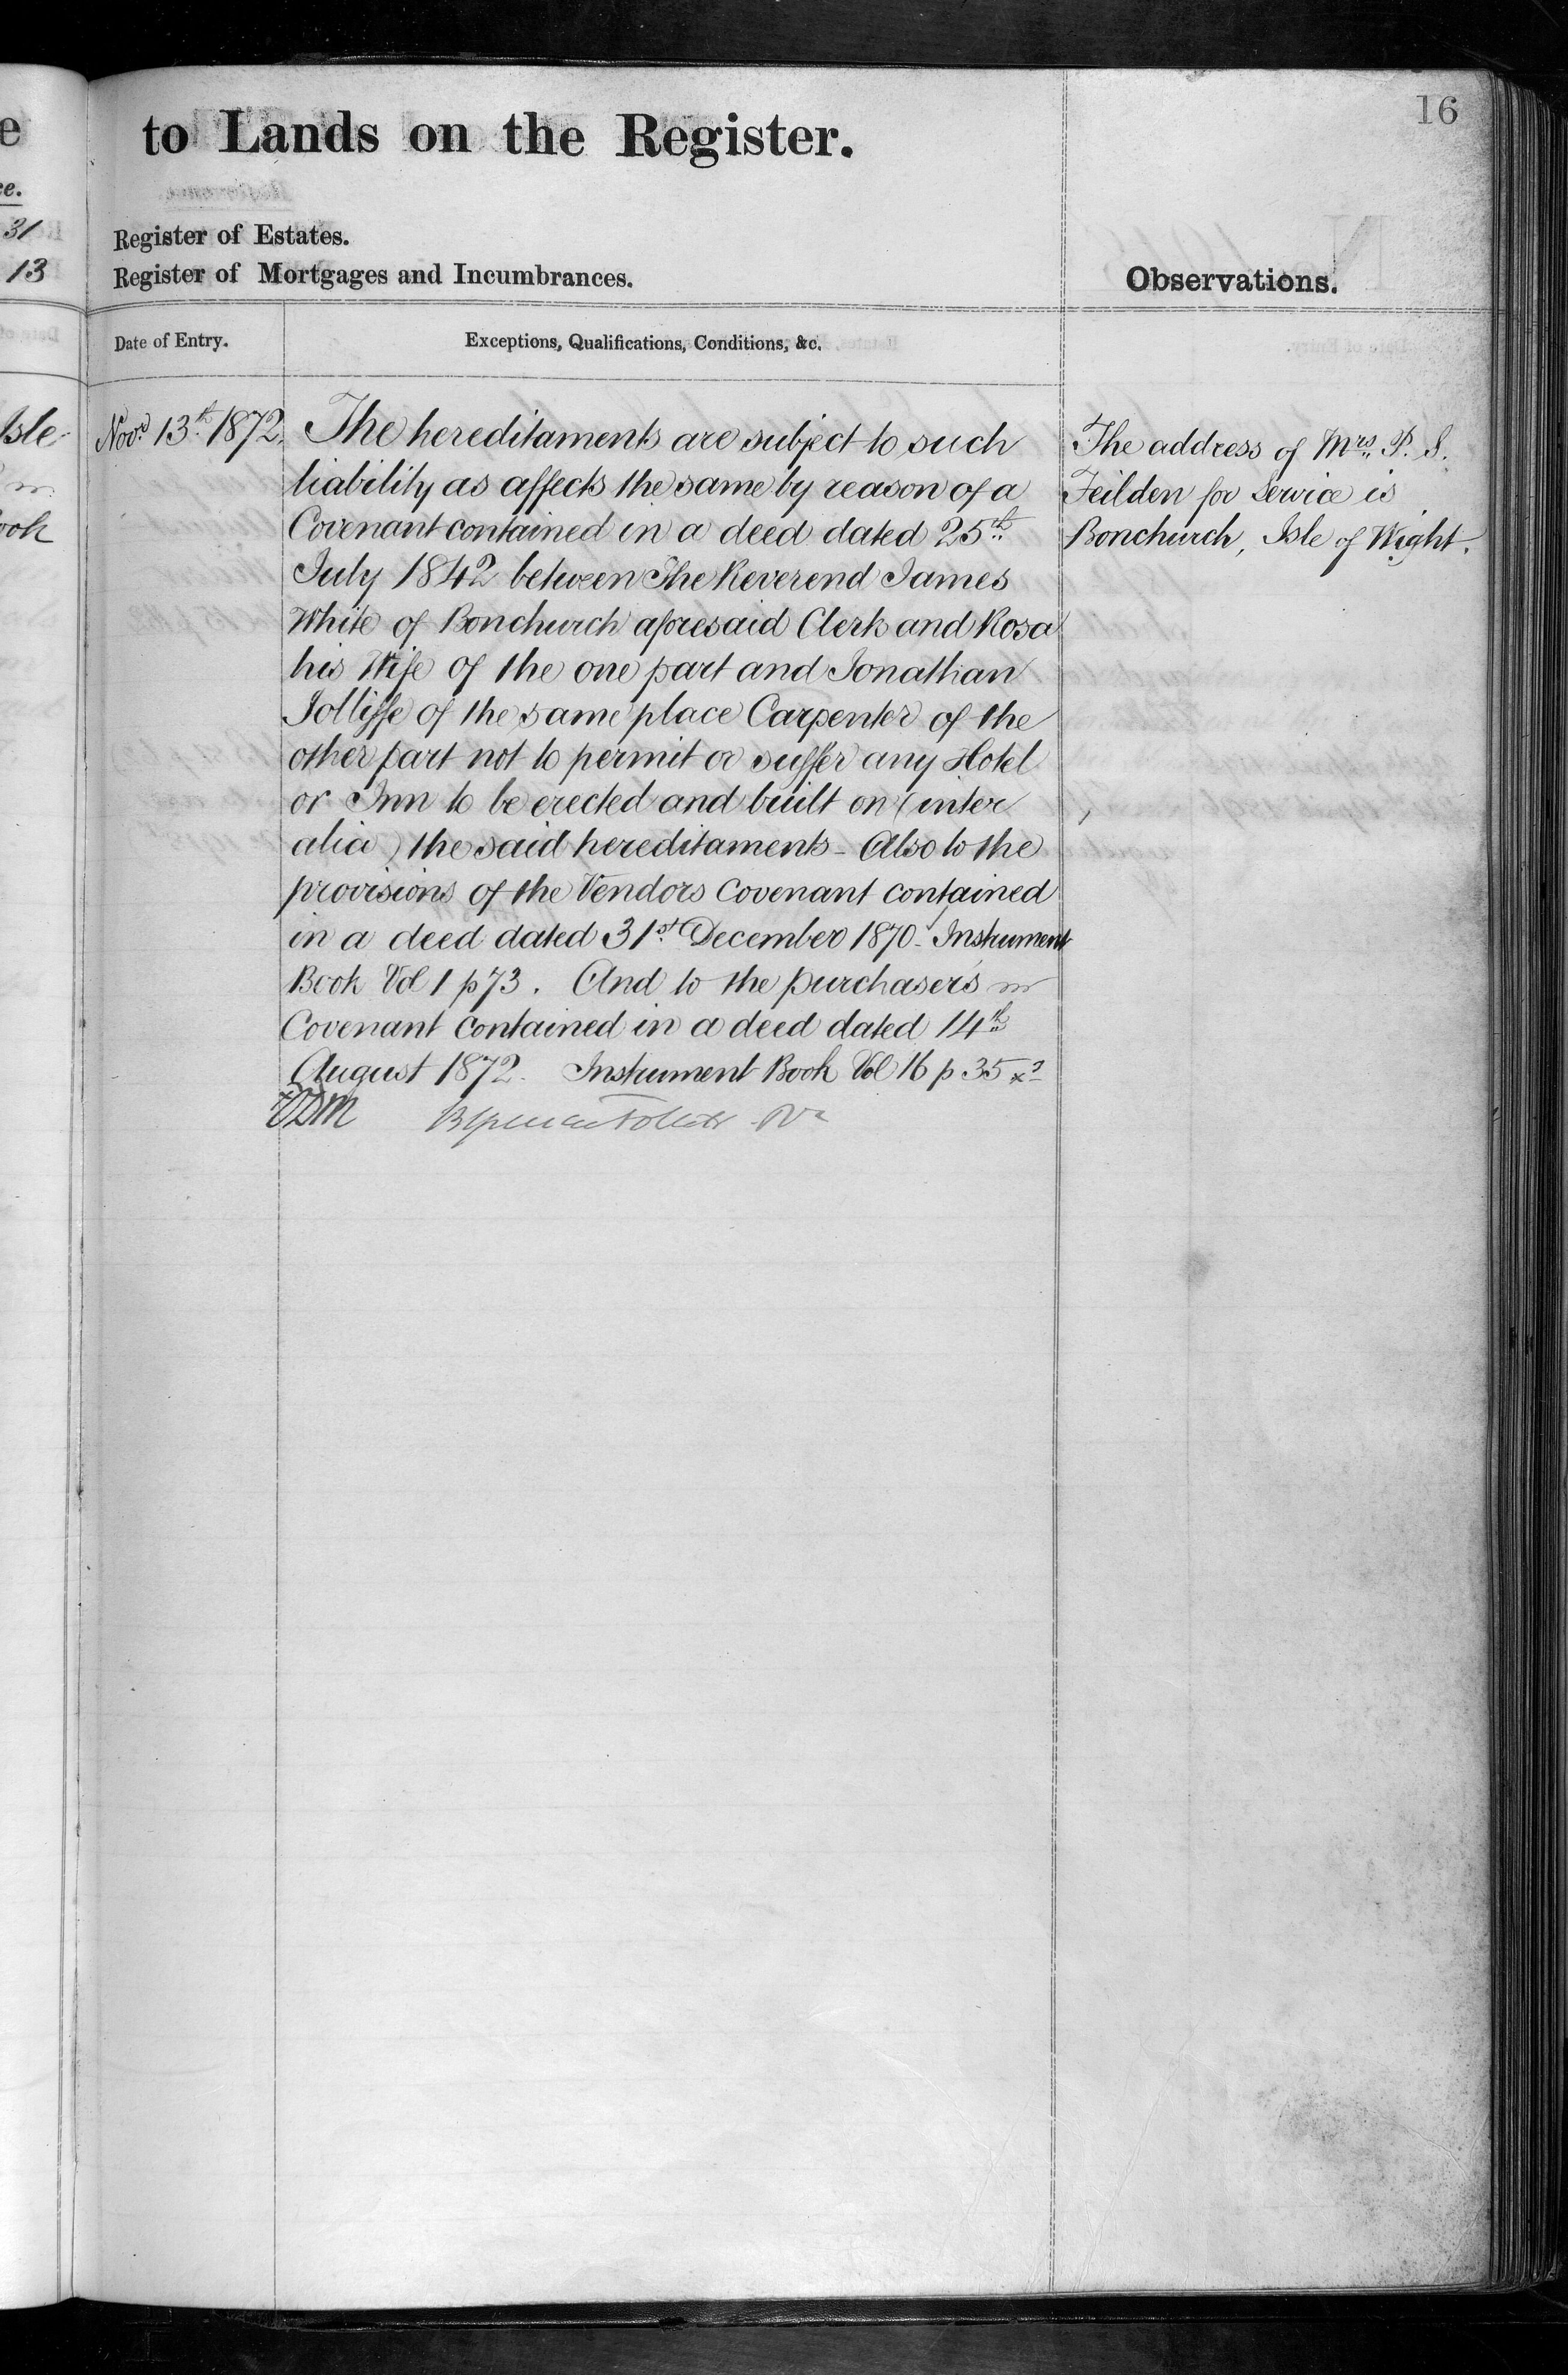 16
to Lands on the Register.
Register of Estates.
Register of Mortgages and Incumbrances.
Observations.
31
13
Date of Entry.
Exceptions, Qualifications, Conditions, &c.
Isle
Novr. 13th 1872.
The hereditaments are subject to such
liability as affects the same by reason of a
Covenant contained in a deed dated 25th
July 1842 between The Reverend James
White of Bonchurch aforesaid Clerk and Rosa
his Wife of the one part and Jonathan
Jolliffe of the same place Carpenter of the
other part not to permit or suffer any Hotel
or Inn to be erected and built on (inter
alia) the said hereditaments - Also to the
provisions of the Vendors Covenant contained
in a deed dated 31st December 1870 - Instrument
Book Vol 1 p 73. And to the purchasers
Covenant contained in a deed dated 14th
August 1872. Instrument Book Vol 16 p 35
The address of Mrs. P. S.
Feilden for Service is
Bonchurch, Isle of Wight.